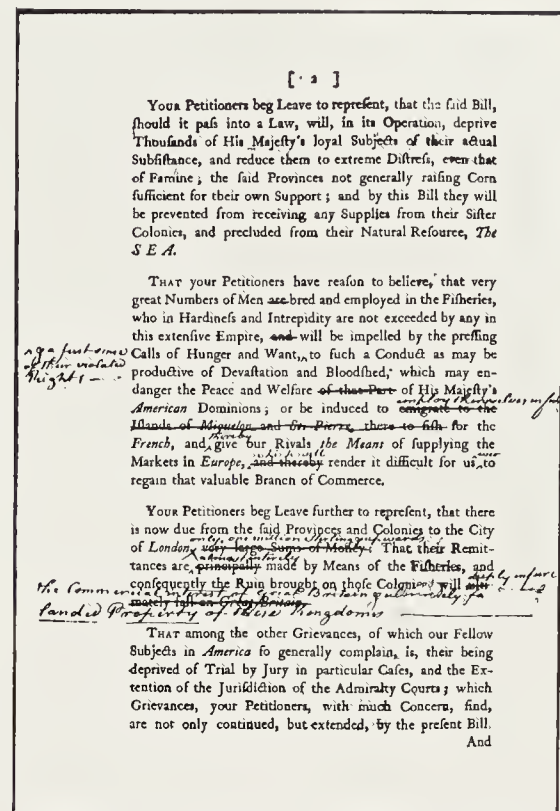 [ 2 ]
YOUR Petitioners beg Leave to repreſent, that the ſaid Bill,
ſhould it paſs into a Law, will, in its Operation, deprive
Thouſands of His Majeſty's loyal Subjects of their actual
Subſiſtance, and reduce them to extreme Diſtreſs, even that
of Famine; the ſaid Provinces not generally raiſing Corn
ſufficient for their own Support; and by this Bill they will
be prevented from receiving any Supplies from their Siſter
Colonies, and precluded from their Natural Reſource, The
SEA.
THAT your Petitioners have reaſon to believe, that very
great Numbers of Men are bred and employed in the Fiſheries,
who in Hardineſs and Intrepidity are not exceeded by any in
this extenſive Empire, and will be impelled by the preſſing
a just sense
of their violated
Rights
Calls of Hunger and Want, to ſuch a Conduct as may be
productive of Devaſtation and Bloodſhed, which may en-
danger the Peace and Welfare of that Part of His Majeſty's
employ themselves in
American Dominions; or be induced to emigrate to the
Iſlands of Miquelon and St. Pierre, there to fiſh for the
thereby
French, and give our Rivals the Means of ſupplying the
which will ever
Markets in Europe, and thereby render it difficult for us to
regain that valuable Branch of Commerce.
YOUR Petitioners beg Leave further to repreſent, that there
is now due from the ſaid Provinces and Colonies to the City
only, one million sterling & upwards
of London, very large Sums of Money: That their Remit-
almost entirely
tances are principally made by Means of the Fiſheries, and
conſequently the Ruin brought on thoſe Colonies will ulti-
deeply injure
mately fall on Great Britain.
the Commercial interest of Great Britain
landed Property of these Kingdoms
THAT among the other Grievances, of which our Fellow
Subjects in America ſo generally complain, is, their being
deprived of Trial by Jury in particular Caſes, and the Ex-
tention of the Juriſdiction of the Admiralty Courts; which
Grievances, your Petitioners, with much Concern, find,
are not only continued, but extended, by the preſent Bill.
And